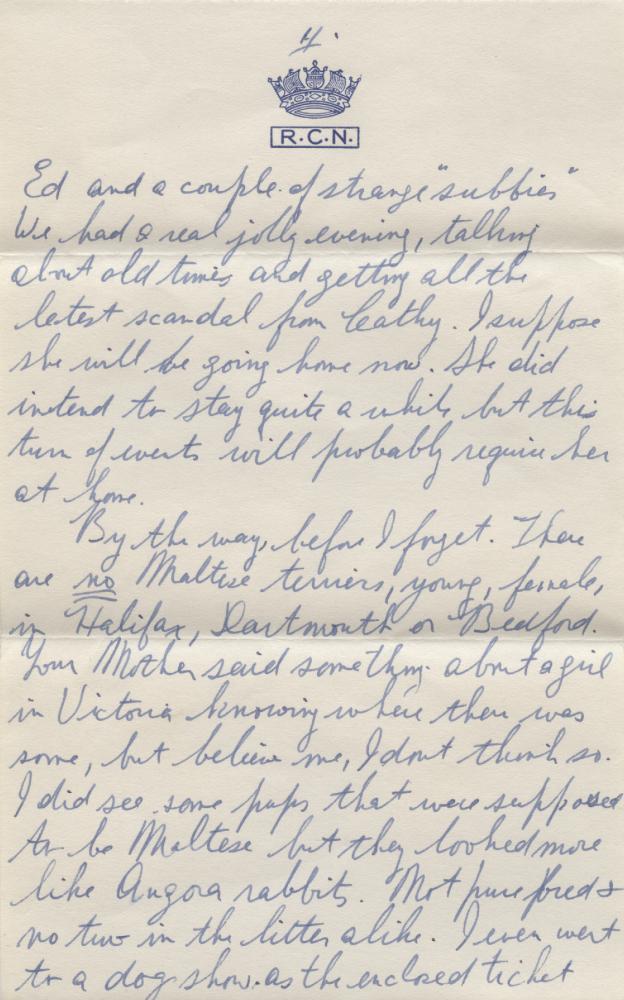 4.
R.C.N.
Ed and a couple of strange "subbies"
We had a real jolly evening, talking
about old times and getting all the
latest scandal from Cathy. I suppose
she will be going home now. She did
intend to stay quite a while but this
turn of events will probably require her
at home.
By the way, before I forget. There
are no Maltese terriers, young, female,
in Halifax, Dartmouth or Bedford.
Your Mother said something about a girl
in Victoria knowing where there was
some, but believe me, I dont think so.
I did see some pups that were supposed
to be Maltese but they looked more
like Angora rabbits. Not pure bred &
no two in the litter alike. I even went
to a dog show. as the enclosed ticket